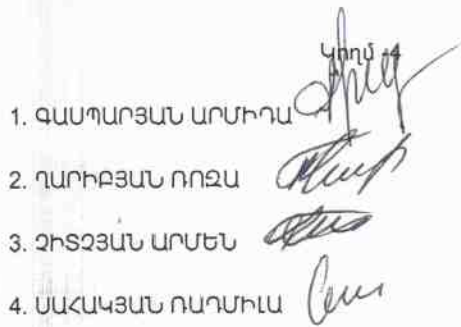 Կողմ -4
1. ԳԱՍՊԱՐՅԱՆ ԱՐՄԻԴԱ
2. ՂԱՐԻԲՅԱՆ ՌՈԶԱ
3. ՉԻՏՉՅԱՆ ԱՐՄԵՆ
4. ՍԱՀԱԿՅԱՆ ՌԱԴՄԻԼԱ